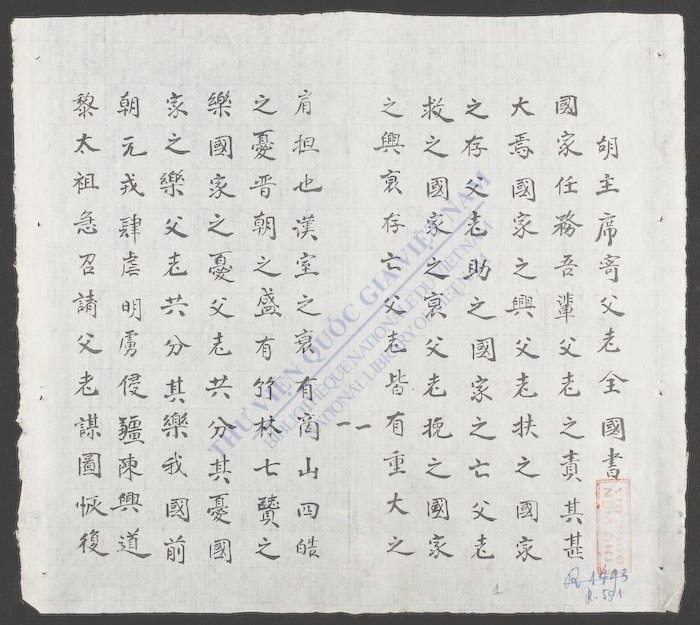 胡主席寄父老全國書
國家任務吾輩父老之責其甚
大焉國家之興父老扶之國家
之存父老助之國家之亡父老
救之國家之衰父老挽之國家
之興衰存亡父老皆有重大之
一一
肩担也漢室之衰有商山四皓
之憂晋朝之盛有竹林七贒之
樂國家之憂父老共分其憂國
家之樂父老共分其樂我國前
朝元戎肆虐明虜侵疆陳興道
黎太祖急召請父老謀圖恢復
THƯ VIỆN QUỐC GIA VIỆT NAM
BIBLIOTHEQUE NATIONALE DU VIETNAM
NATIONAL LIBRARY OF VIETNAM
R.551
1